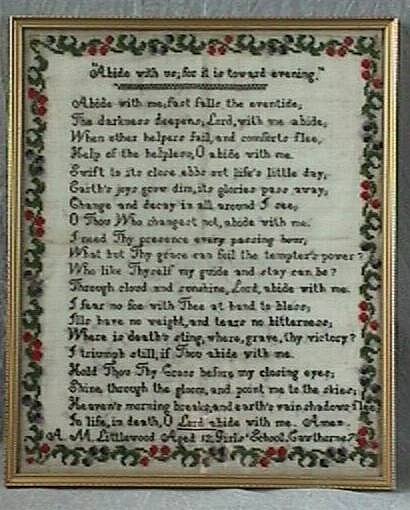 "Abide with us; for it is toward evening."
Abide with me; fast falls the eventide;
The darkness deepens; Lord, with me abide;
When other helpers fail, and comforts flee,
Help of the helpless, O abide with me.
Swift to its close ebbs out life's little day;
Earth's joys grow dim, its glories pass away;
Change and decay in all around I see;
O Thou Who changest not, abide with me.
I need Thy presence every passing hour;
What but Thy grace can foil the tempter's power?
Who like Thyself my guide and stay can be?
Through cloud and sunshine, Lord, abide with me.
I fear no foe with Thee at hand to bless;
Ills have no weight, and tears no bitterness;
Where is death's sting, where, grave, thy victory?
I triumph still, if Thou abide with me.
Hold Thou Thy Cross before my closing eyes;
Shine through the gloom, and point me to the skies;
Heaven's morning breaks, and earth's vain shadows flee;
In life, in death, O Lord abide with me. Amen.
A. M. Littlewood Aged 12 Girls' School. Cawthorne